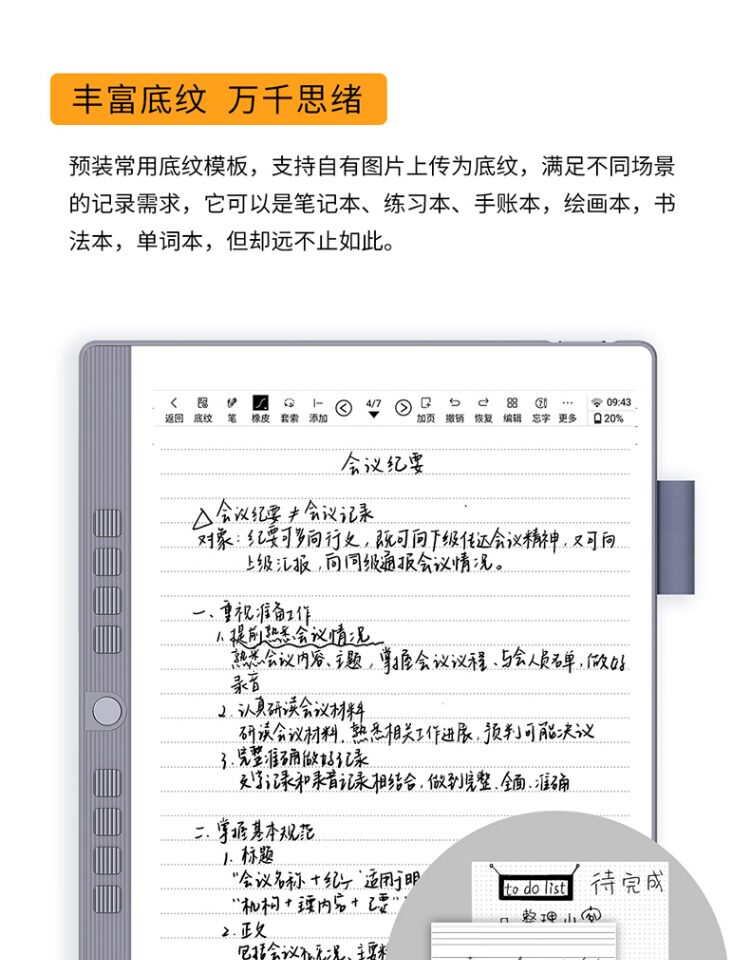 丰富底纹 万千思绪
预装常用底纹模板，支持自有图片上传为底纹，满足不同场景
的记录需求，它可以是笔记本、练习本、手账本，绘画本，书
法本，单词本，但却远不止如此。
返回 底纹 笔 橡皮 套索 添加 4/7 加页 撤销 恢复 编辑 忘字 更多 09:43 20%
会议纪要
△会议纪要≠会议记录
对象：纪要可多向行文，既可向下级传达会议精神，又可向
上级汇报，向同级通报会议情况。
一、重视准备工作
1.提前熟悉会议情况
熟悉会议内容、主题，掌握会议议程、与会人员名单，做好
录音
2.认真研读会议材料
研读会议材料，熟悉相关工作进展，预判可能决议
3.完整准确做好记录
文字记录和录音记录相结合，做到完整、全面、准确
二、掌握基本规范
1.标题
"会议名称+纪 适用于明
"机构+主要内容+ 要"
2.正文
包括会议概况、主要
to do list 待完成
整理小